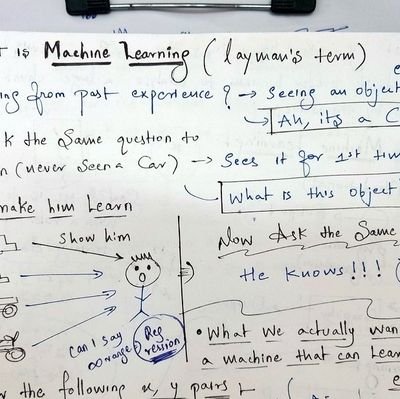 t is Machine Learning (layman's term)
ng from past experience? → Seeing an object
→ Ah, its a C
k the Same question to
n (never Seen a Car) → Sees it for 1st tim
What is this object
make him Learn
Show him
Now Ask the Same
He knows!!! (
can I say
orange?
Reg
ression
• What we actually wan
a machine that can Lear
the following x, y pairs